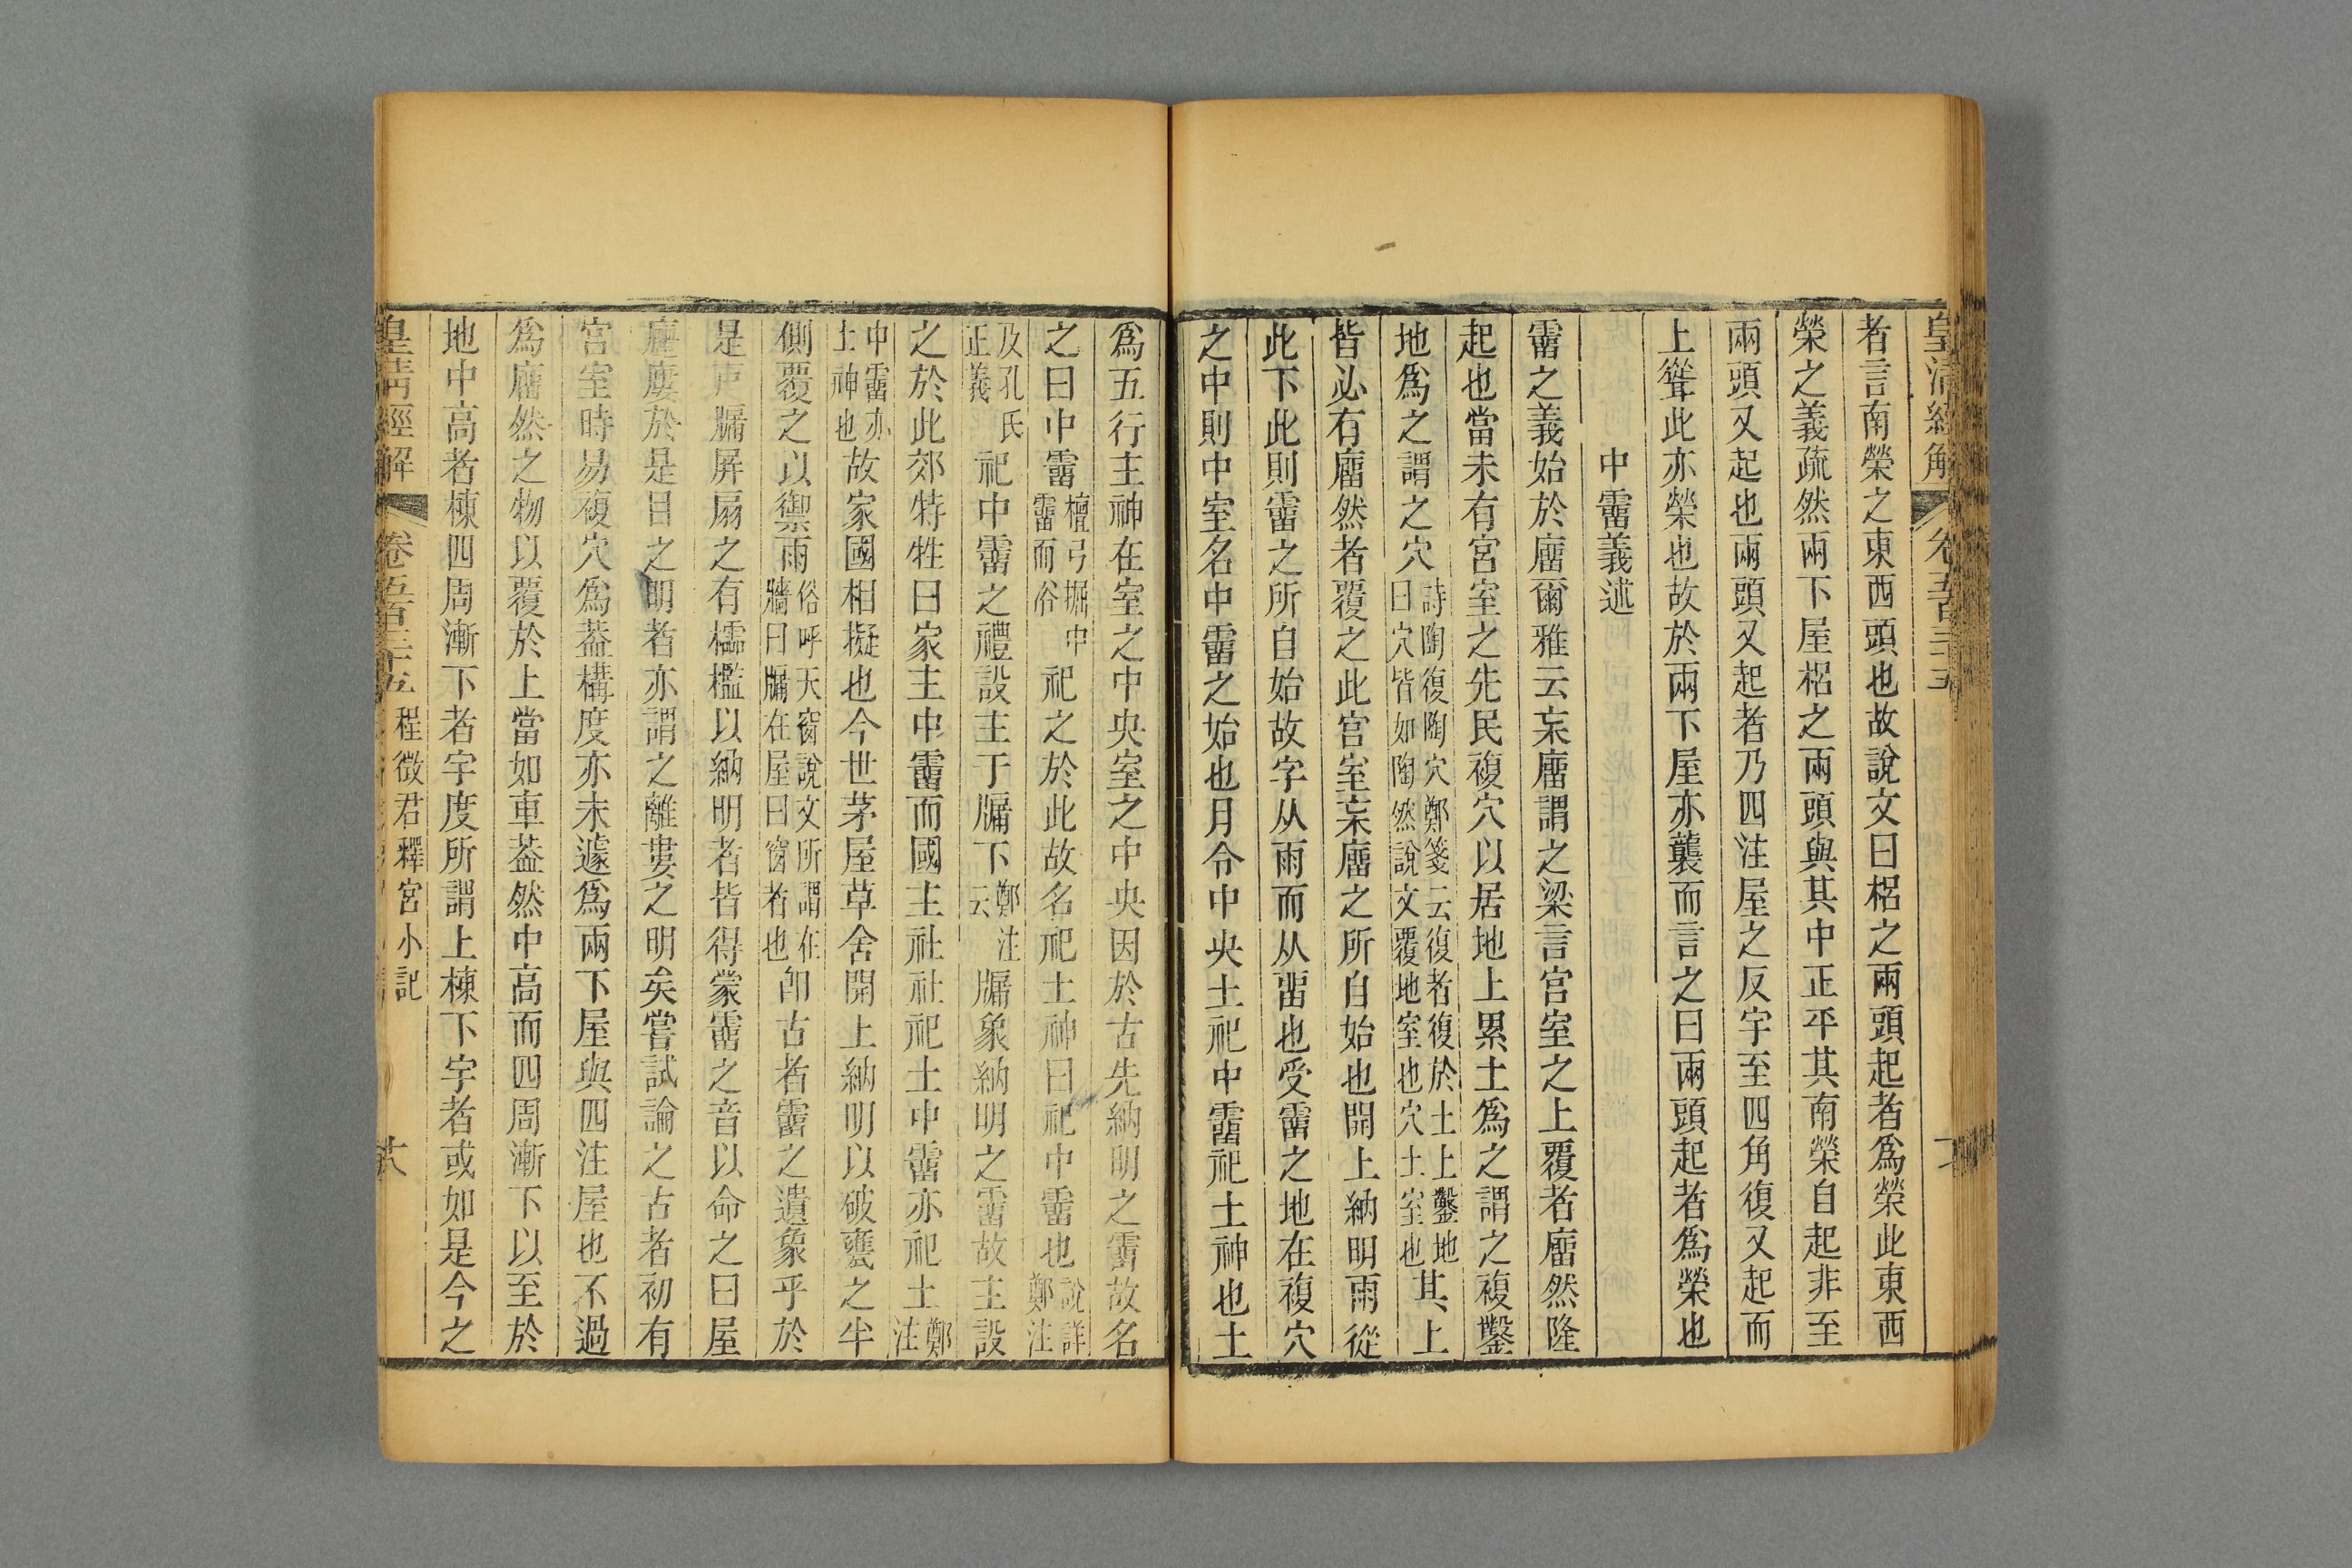 皇清經解 卷五百三十五
者言南榮之東西頭也故說文曰梠之兩頭起者爲榮此東西
榮之義疏然兩下屋梠之兩頭與其中正平其南榮自起非至
兩頭又起也兩頭又起者乃四注屋之反宇至四角復又起而
上聳此亦榮也故於兩下屋亦襲而言之曰兩頭起者爲榮也
中霤義述
霤之義始於廇爾雅云杗廇謂之梁言宮室之上覆者廇然隆
起也當未有宮室之先民複穴以居地上累土爲之謂之複鑿
地爲之謂之穴詩陶復陶穴鄭箋云復者復於土上鑿地曰穴皆如陶然說文覆地室也穴土室也其上
皆必有廇然者覆之此宮室杗廇之所自始也開上納明雨從
此下此則霤之所自始故字从雨而从畱也受霤之地在複穴
之中則中室名中霤之始也月令中央土祀中霤祀土神也土
爲五行主神在室之中央室之中央因於古先納明之霤故名
之曰中霤檀弓掘中霤而浴祀之於此故名祀土神曰祀中霤也說詳鄭注
及孔氏正義祀中霤之禮設主于牖下鄭注云牖象納明之霤故主設
之於此郊特牲曰家主中霤而國主社社祀土中霤亦祀土鄭注
中霤亦土神也故家國相擬也今世茅屋草舍開上納明以破甕之半
側覆之以禦雨俗呼天窗說文所謂在牆曰牖在屋曰窗者也卽古者霤之遺象乎於
是戸牖屏扇之有櫺檻以納明者皆得蒙霤之音以命之曰屋
廔於是目之明者亦謂之離婁之明矣嘗試論之古者初有
宮室時易複穴爲葢構度亦未遽爲兩下屋與四注屋也不過
爲廇然之物以覆於上當如車葢然中高而四周漸下以至於
地中高者棟四周漸下者宇度所謂上棟下宇者或如是今之
皇淸經解 卷五百三十五 程徵君釋宮小記